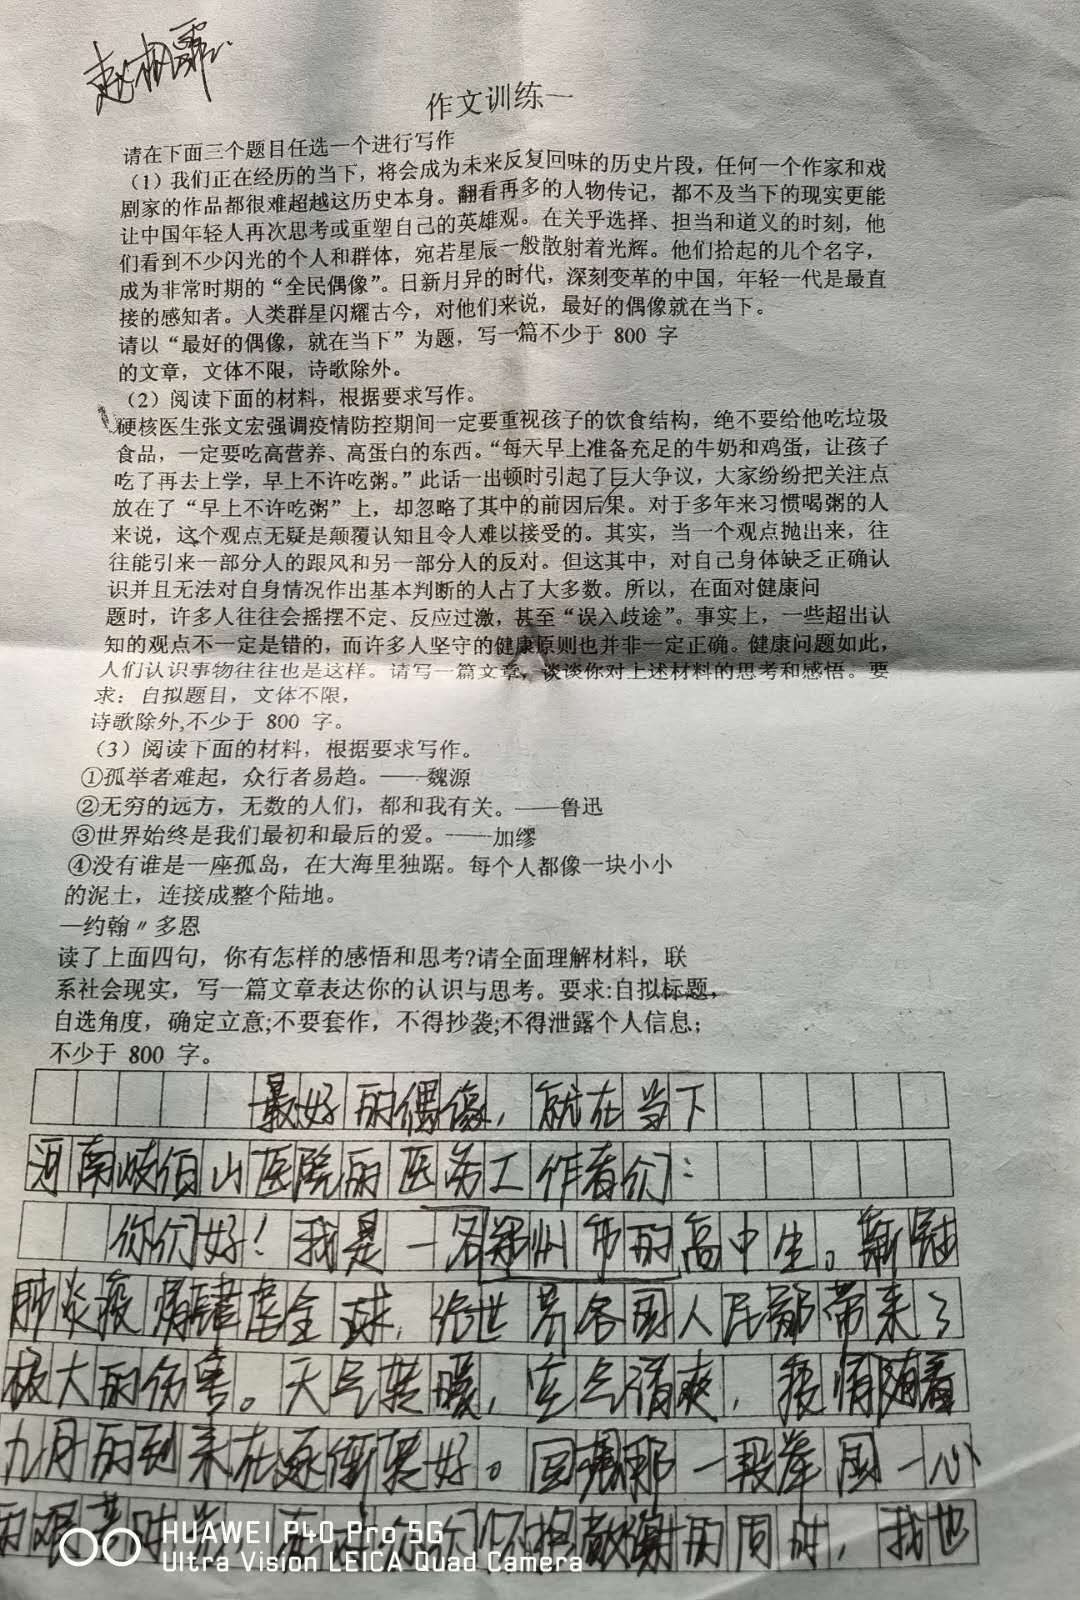 作文训练一
请在下面三个题目任选一个进行写作
（1）我们正在经历的当下，将会成为未来反复回味的历史片段，任何一个作家和戏
剧家的作品都很难超越这历史本身。翻看再多的人物传记，都不及当下的现实更能
让中国年轻人再次思考或重塑自己的英雄观。在关乎选择、担当和道义的时刻，他
们看到不少闪光的个人和群体，宛若星辰一般散射着光辉。他们拾起的几个名字，
成为非常时期的“全民偶像”。日新月异的时代，深刻变革的中国，年轻一代是最直
接的感知者。人类群星闪耀古今，对他们来说，最好的偶像就在当下。
请以“最好的偶像，就在当下”为题，写一篇不少于 800 字
的文章，文体不限，诗歌除外。
（2）阅读下面的材料，根据要求写作。
硬核医生张文宏强调疫情防控期间一定要重视孩子的饮食结构，绝不要给他吃垃圾
食品，一定要吃高营养、高蛋白的东西。“每天早上准备充足的牛奶和鸡蛋，让孩子
吃了再去上学，早上不许吃粥。”此话一出顿时引起了巨大争议，大家纷纷把关注点
放在了“早上不许吃粥”上，却忽略了其中的前因后果。对于多年来习惯喝粥的人
来说，这个观点无疑是颠覆认知且令人难以接受的。其实，当一个观点抛出来，往
往能引来一部分人的跟风和另一部分人的反对。但这其中，对自己身体缺乏正确认
识并且无法对自身情况作出基本判断的人占了大多数。所以，在面对健康问
题时，许多人往往会摇摆不定、反应过激，甚至“误入歧途”。事实上，一些超出认
知的观点不一定是错的，而许多人坚守的健康原则也并非一定正确。健康问题如此，
人们认识事物往往也是这样。请写一篇文章，谈谈你对上述材料的思考和感悟。要
求：自拟题目，文体不限，
诗歌除外,不少于 800 字。
（3）阅读下面的材料，根据要求写作。
①孤举者难起，众行者易趋。——魏源
②无穷的远方，无数的人们，都和我有关。——鲁迅
③世界始终是我们最初和最后的爱。——加缪
④没有谁是一座孤岛，在大海里独踞。每个人都像一块小小
的泥土，连接成整个陆地。
—约翰〃多恩
读了上面四句，你有怎样的感悟和思考?请全面理解材料，联
系社会现实，写一篇文章表达你的认识与思考。要求:自拟标题，
自选角度，确定立意;不要套作，不得抄袭;不得泄露个人信息；
不少于 800 字。
最好的偶像，就在当下
河南岐伯山医院的医务工作者们：
你们好！我是一名郑州市的高中生。新冠
肺炎疫情肆虐全球，给世界各国人民都带来了
极大的伤害。天气转暖，空气清爽，疫情随着
九月的到来在逐渐转好。回想那一段举国一心
的艰苦时，你们怀抱敬谢的同时，我也
HUAWEI P40 Pro 5G
Ultra Vision LEICA Quad Camera